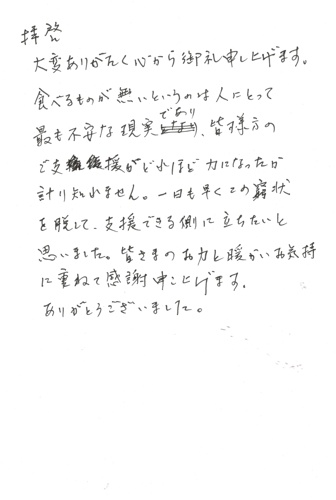 拝啓
大変ありがたく心から御礼申し上げます。
食べるものが無いというのは人にとって
最も不安な現実であり、皆様方の
ご支援がどれほど力になったか
計り知れません。一日も早くこの窮状
を脱して、支援できる側に立ちたいと
思いました。皆さまのお力と暖かいお気持
に重ねて感謝申し上げます。
ありがとうございました。